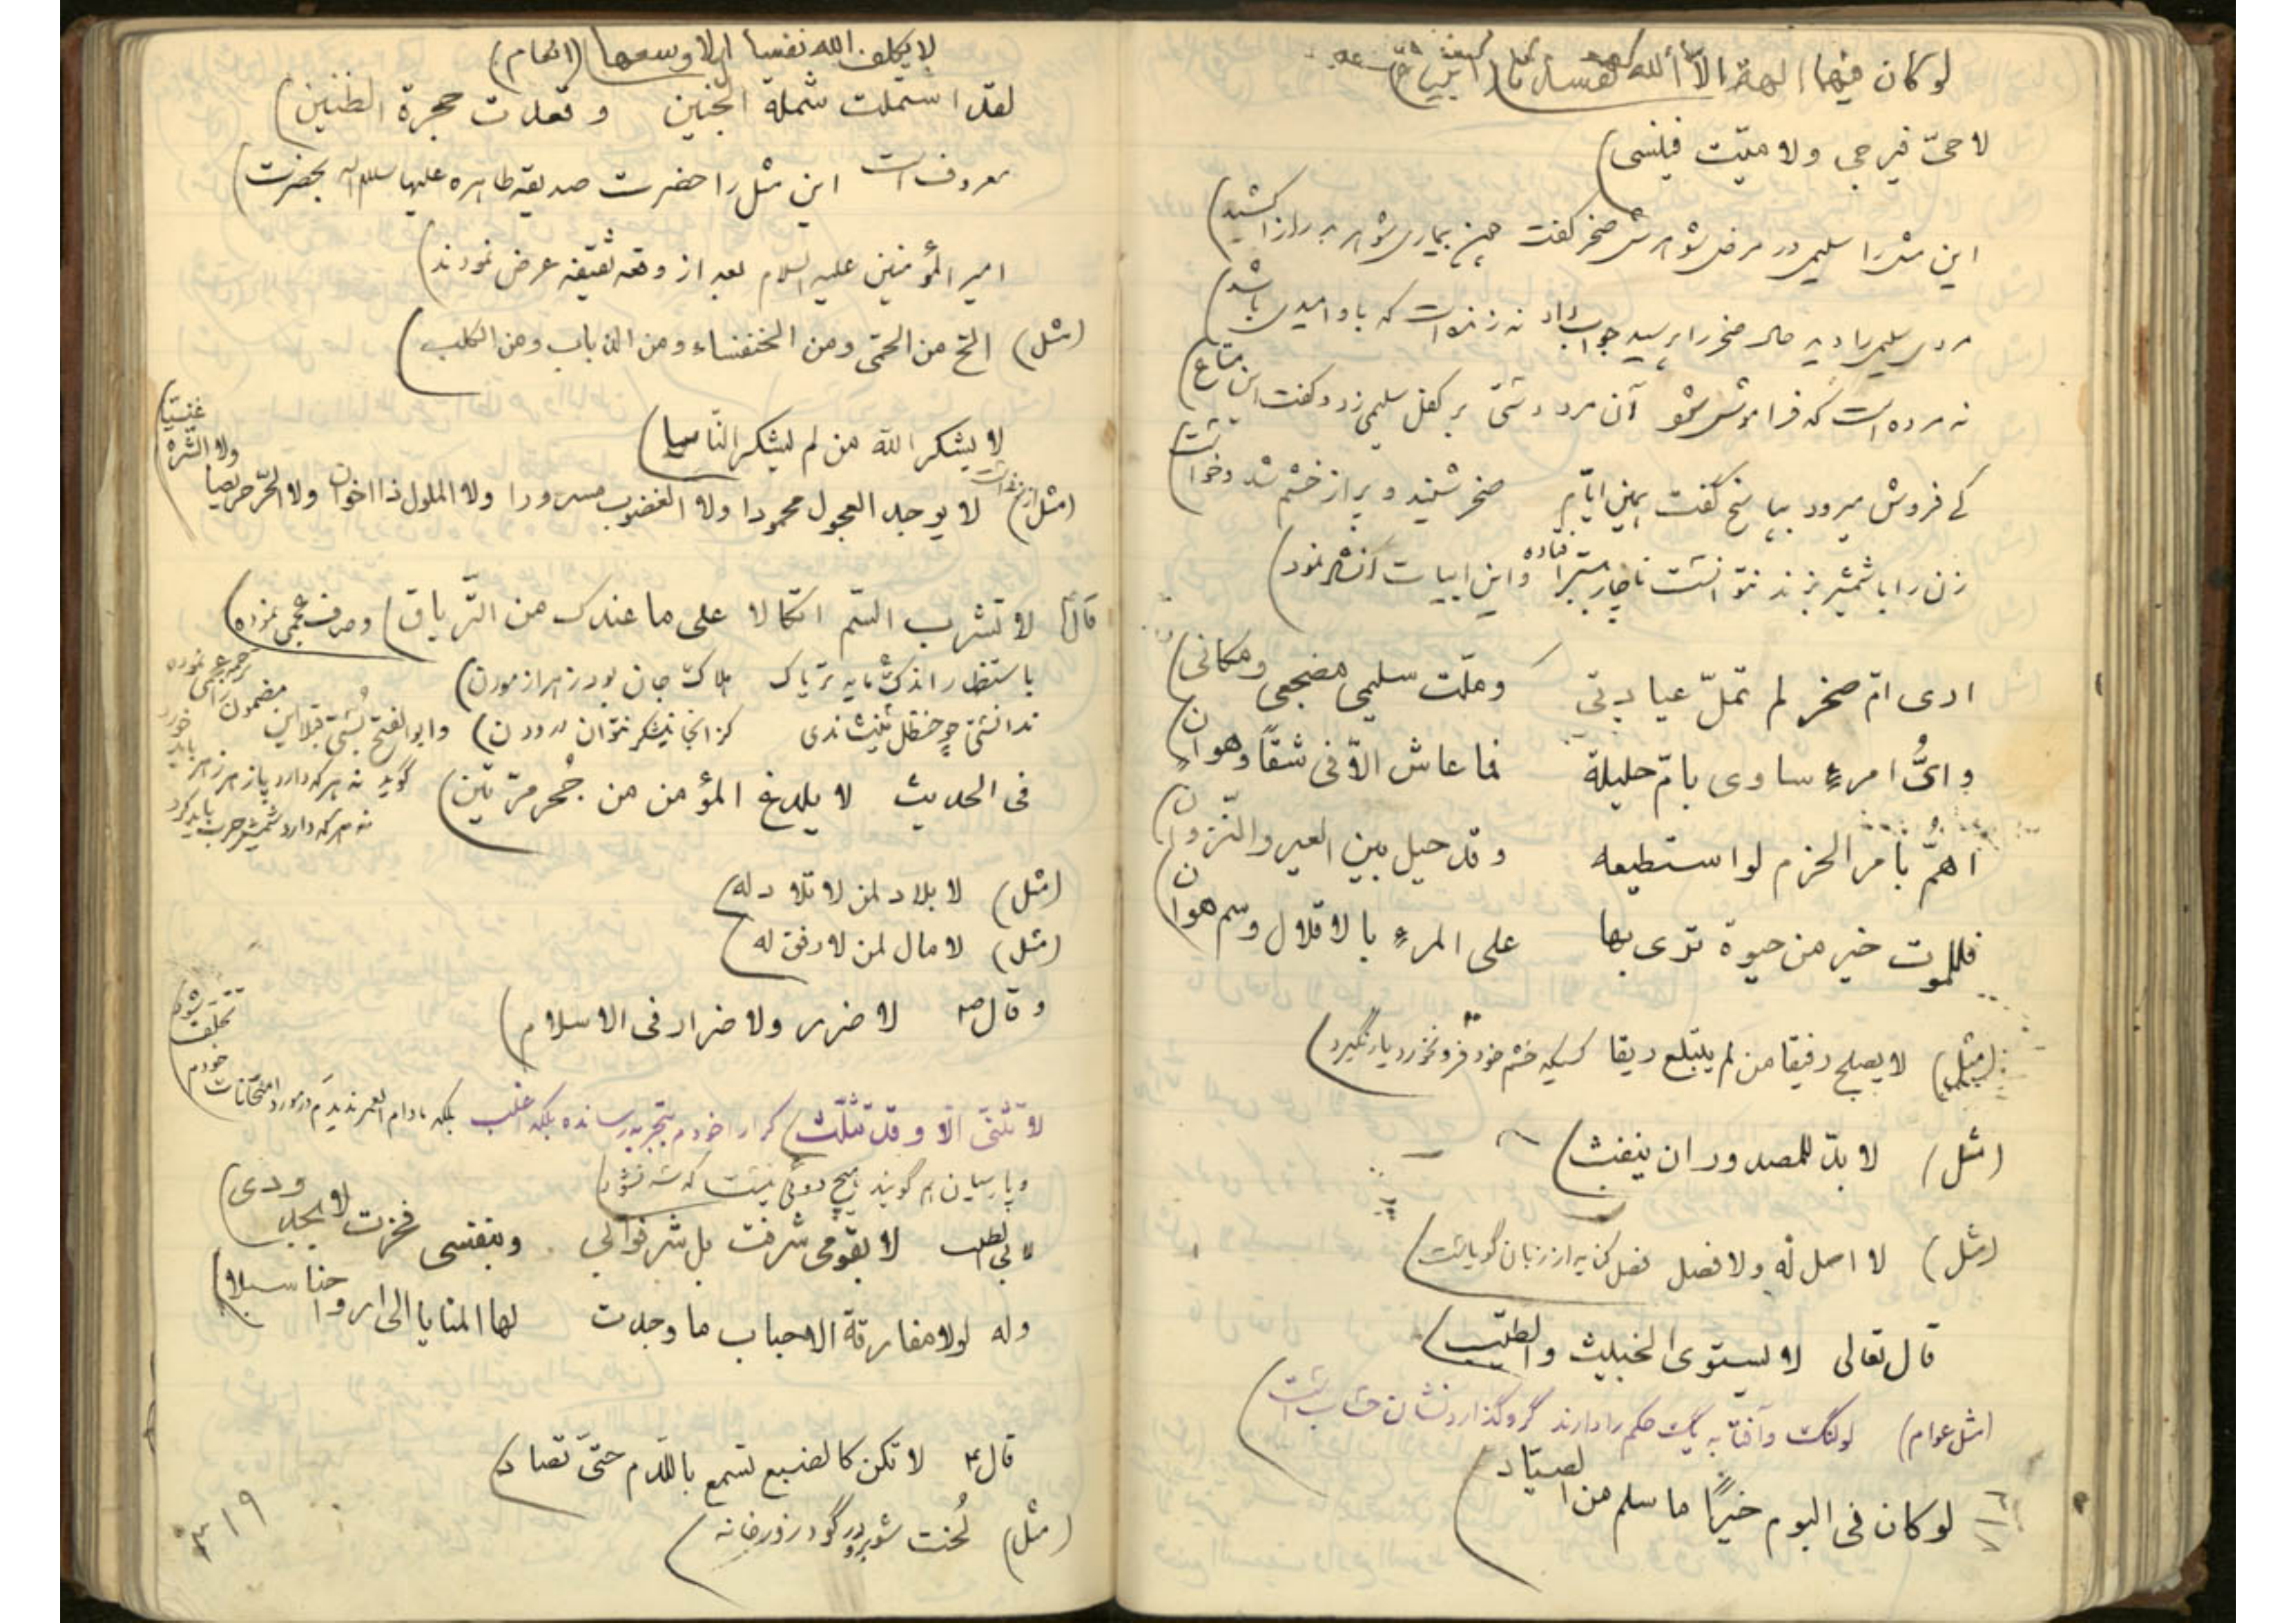 لو كان فيهما الهة الا الله لفسدتا
لا حىّ فيرجى ولا ميّت فينسى)
اين مثل را سليمى در مرض شوهرش صخر گفت بيمارى شوهر بدراز كشيد)
مردى سليمى را ديد حال صخر را پرسيد جواب داد نه زنده است كه باو اميدى باشد)
نه مرده است كه فراموش شود آن مرد دستى بر كفل سليمى زد و گفت اين متاع)
كى فروش ميرود بپاسخ گفت همين ايام صخر شنيد و پر از خشم شد و خواست
زن را با شمشير بزند نتوانست ناچار ببستر افتاده و اين ابيات انشاء نمود)
ارى امّ صخر لم تملّ عيادتى وملّت سليمى مضجعى ومكانى)
واىُّ امرءٍ ساوى بامّ حليلة فما عاش الاّ فى شقاً وهوان
اهمُّ بامر الحزم لو استطيعه وقد حيل بين العير والنّزوان
فللموت خير من حيوة ترى بها على المرءِ بالاقلال وسم هوان
(مثل) لا يصلح رفيقا من لم يبتلع ريقا كسيكه خشم خود فرو نخورد يار نگيرد)
(مثل) لا بدّ للمصدور ان ينفث)
(مثل) لا اصل له ولا فصل فصل كنايه از زبان گوياست)
قال تعالى لا يستوى الخبيث والطيّب)
(مثل عوام) لولنگ و آفتابه يك حكم را دارند گرو گذارد نشان حساب است)
لو كان فى البوم خيرًا ما سلم من الصيّاد)
لا يكلف الله نفسا الا وسعها)
لقد اشتملت شملة الجنين وقعدت حجرة الظنين)
معروف است اين مثل را حضرت صديقه طاهره عليها سلام اله بحضرت)
امير المؤمنين عليه السلام بعد از وقعه ثقيفه عرض نمودند)
(مثل) الحّ من الحمّى ومن الخنفساء ومن الذباب ومن الكلب)
لا يشكر الله من لم يشكر النّاس)
(مثل) لا يوجد العجول محمودا ولا الغضوب مسرورا ولا الملول ذا اخوان ولا الحرّ حريصا
ولا الشّره
غنيّا
قال لا تشرب السّم اتكالا على ما عندك من التّرياق) وصرف عجمى نموده)
باستظهار آنكت مايه ترياك هلاك جان بود زهر آزمودن)
ندانستى چو حنظل مينشاندى كز آنجا نيشكر نتوان درودن) وابو الفتح بُستى قبلا اين
مضمون را
ترجمه عجمى نموده
گويد نه هر كه دارد پازهر زهر بايد خورد
نه هر كه دارد شمشير حرب بايد كرد
فى الحديث لا يلدغ المؤمن من جُحر مرّتين)
(مثل) لا بلاد لمن لا تلاد له)
(مثل) لا مال لمن لا رفق له)
وقال ص لا ضرر ولا ضرار فى الاسلام)
لا تثنّى الّا وقد تثلّث) كرارا خودم بتجربه رسانده بلكه اغلب بلكه مادام العمر نديدم در مورد امتحانات
خودم
تخلّف
شود
و پارسيان هم گويند هيچ دوئى نيست كه سه نشود)
لابى الطيب لا بقومى شرفت بل شرفوا بى وبنفسى فخرت لا بجدودى)
وله لولا مفارقة الاحباب ما وجدت لها المنايا الى ارواحنا سبلا)
قال ع لا تكن كالضبع تسمع باللّدم حتىّ تصاد)
(مثل) لُخت شو برو در گود زورخانه)
٣١٩